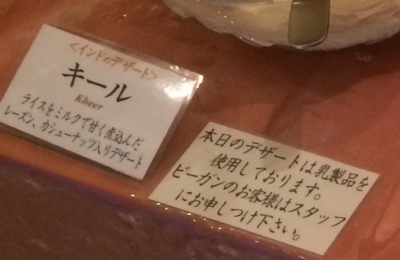 ＜インドのデザート＞
キール
Kheer
ライスをミルクで甘く煮込んだ
レーズン、カシューナッツ入りデザート
本日のデザートは乳製品を
使用しております。
ビーガンのお客様はスタッフ
にお申しつけ下さい。